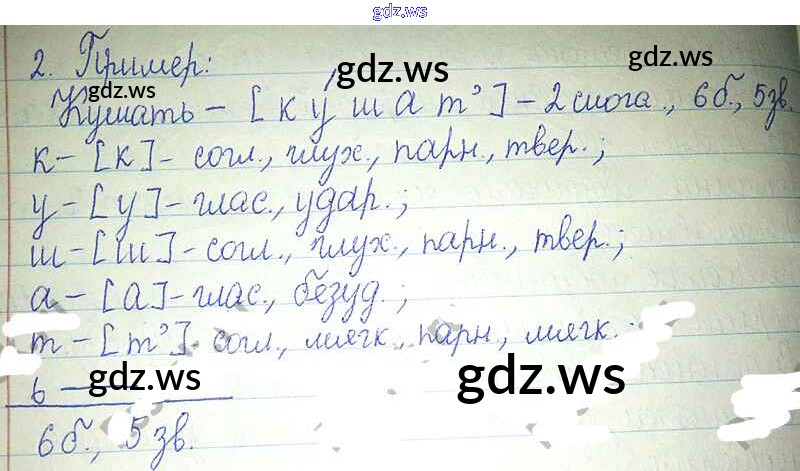 gdz.ws
2. Пример:
gdz.ws
gdz.ws
gdz.ws
Кушать – [к у́ ш а т'] – 2 слога., 6 б., 5 зв.
к – [к] – согл., глух., парн., твер.;
у – [у] – глас., удар.;
ш – [ш] – согл., глух., парн., твер.;
а – [а] – глас., безуд.;
т – [т'] – согл., мягк., парн., мягк.;
gdz.ws
gdz.ws
ь –
6 б., 5 зв.